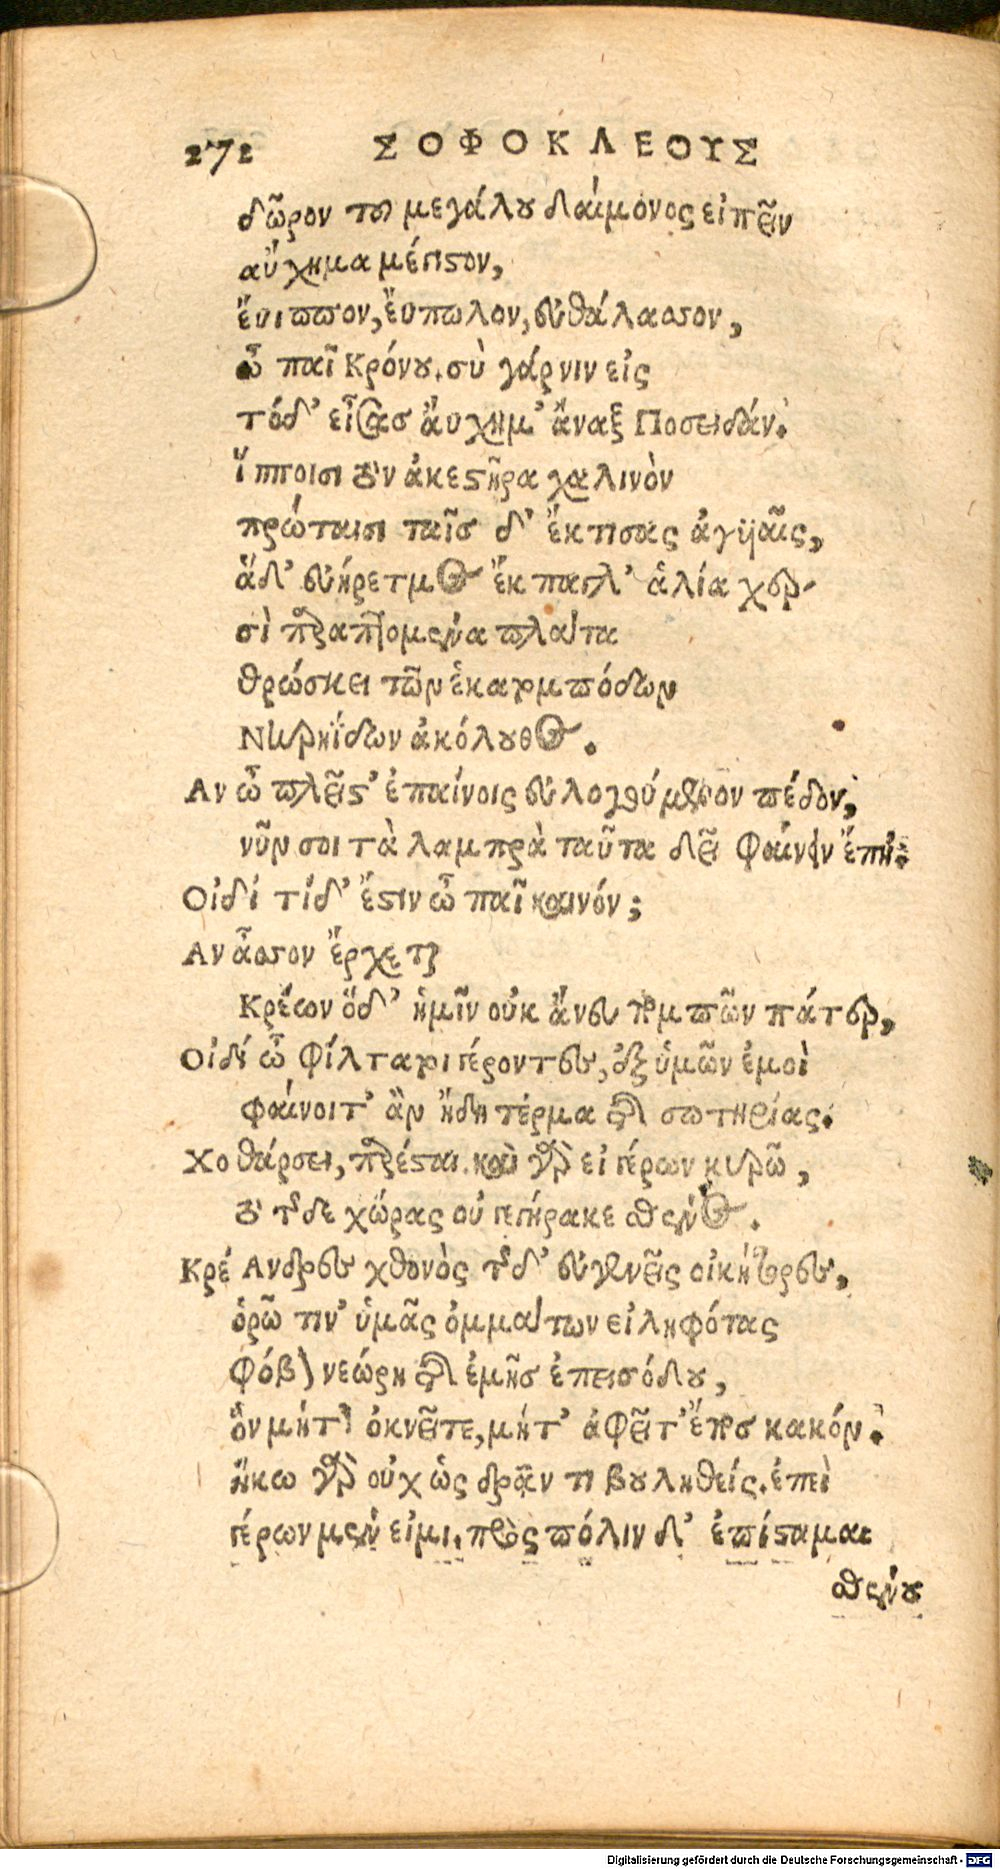 272 ΣΟΦΟΚΛΕΟΥΣ
δῶρον τοῦ μεγάλου δαίμονος εἰπεῖν
αὔχημα μέγιστον,
ἔυιππον, ἔυπωλον, εὐθάλασσον,
ὦ παῖ Κρόνου. σὺ γάρ νιν εἰς
τόδ' εἷσας ἄυχημ' ἄναξ Ποσειδάν.
ἵπποισι τὸν ἀκεστῆρα χαλινὸν
πρώταισι ταῖσδ' ἔκτισας ἀγυιαῖς,
ἅδ' εὐήρετμος ἔκπαγλ' ἁλία χερ-
σὶ παραπτομένα πλάτα
θρώσκει τῶν ἑκατομπόδων
Νηρηΐδων ἀκόλουθος.
Αν ὦ πλεῖστ' ἐπαίνοις εὐλογούμενον πέδον,
νῦν σοι τὰ λαμπρὰ ταῦτα δεῖ φαίνειν ἔπη.
Οἰδί τί δ' ἔστιν ὦ παῖ καινόν;
Αν ἆσσον ἔρχεται
Κρέων ὅδ' ἡμῖν οὐκ ἄνευ πομπῶν πάτερ,
Οἰδί ὦ φίλτατοι γέροντες, ἐξ ὑμῶν ἐμοὶ
φαίνοιτ' ἂν ἤδη τέρμα τῆς σωτηρίας.
Χο θάρσει, παρέσται. καὶ γὰρ εἰ γέρων κυρῶ,
τὸ τῆσδε χώρας οὐ γεγήρακε σθένος.
Κρέ Ανδρες χθονὸς τῆσδ' εὐγενεῖς οἰκήτορες,
ὁρῶ τιν' ὑμᾶς ὀμμάτων εἰληφότας
φόβον νεώρη τῆς ἐμῆς ἐπεισόδου,
ὃν μήτ' ὀκνεῖτε, μήτ' ἀφεῖτ' ἔπος κακόν.
ἥκω γὰρ οὐχ ὡς δρᾶν τι βουληθείς. ἐπεὶ
γέρων μὲν εἰμι. πρὸς πόλιν δ' ἐπίσταμαι
σθένου
Digitalisierung gefördert durch die Deutsche Forschungsgemeinschaft - DFG